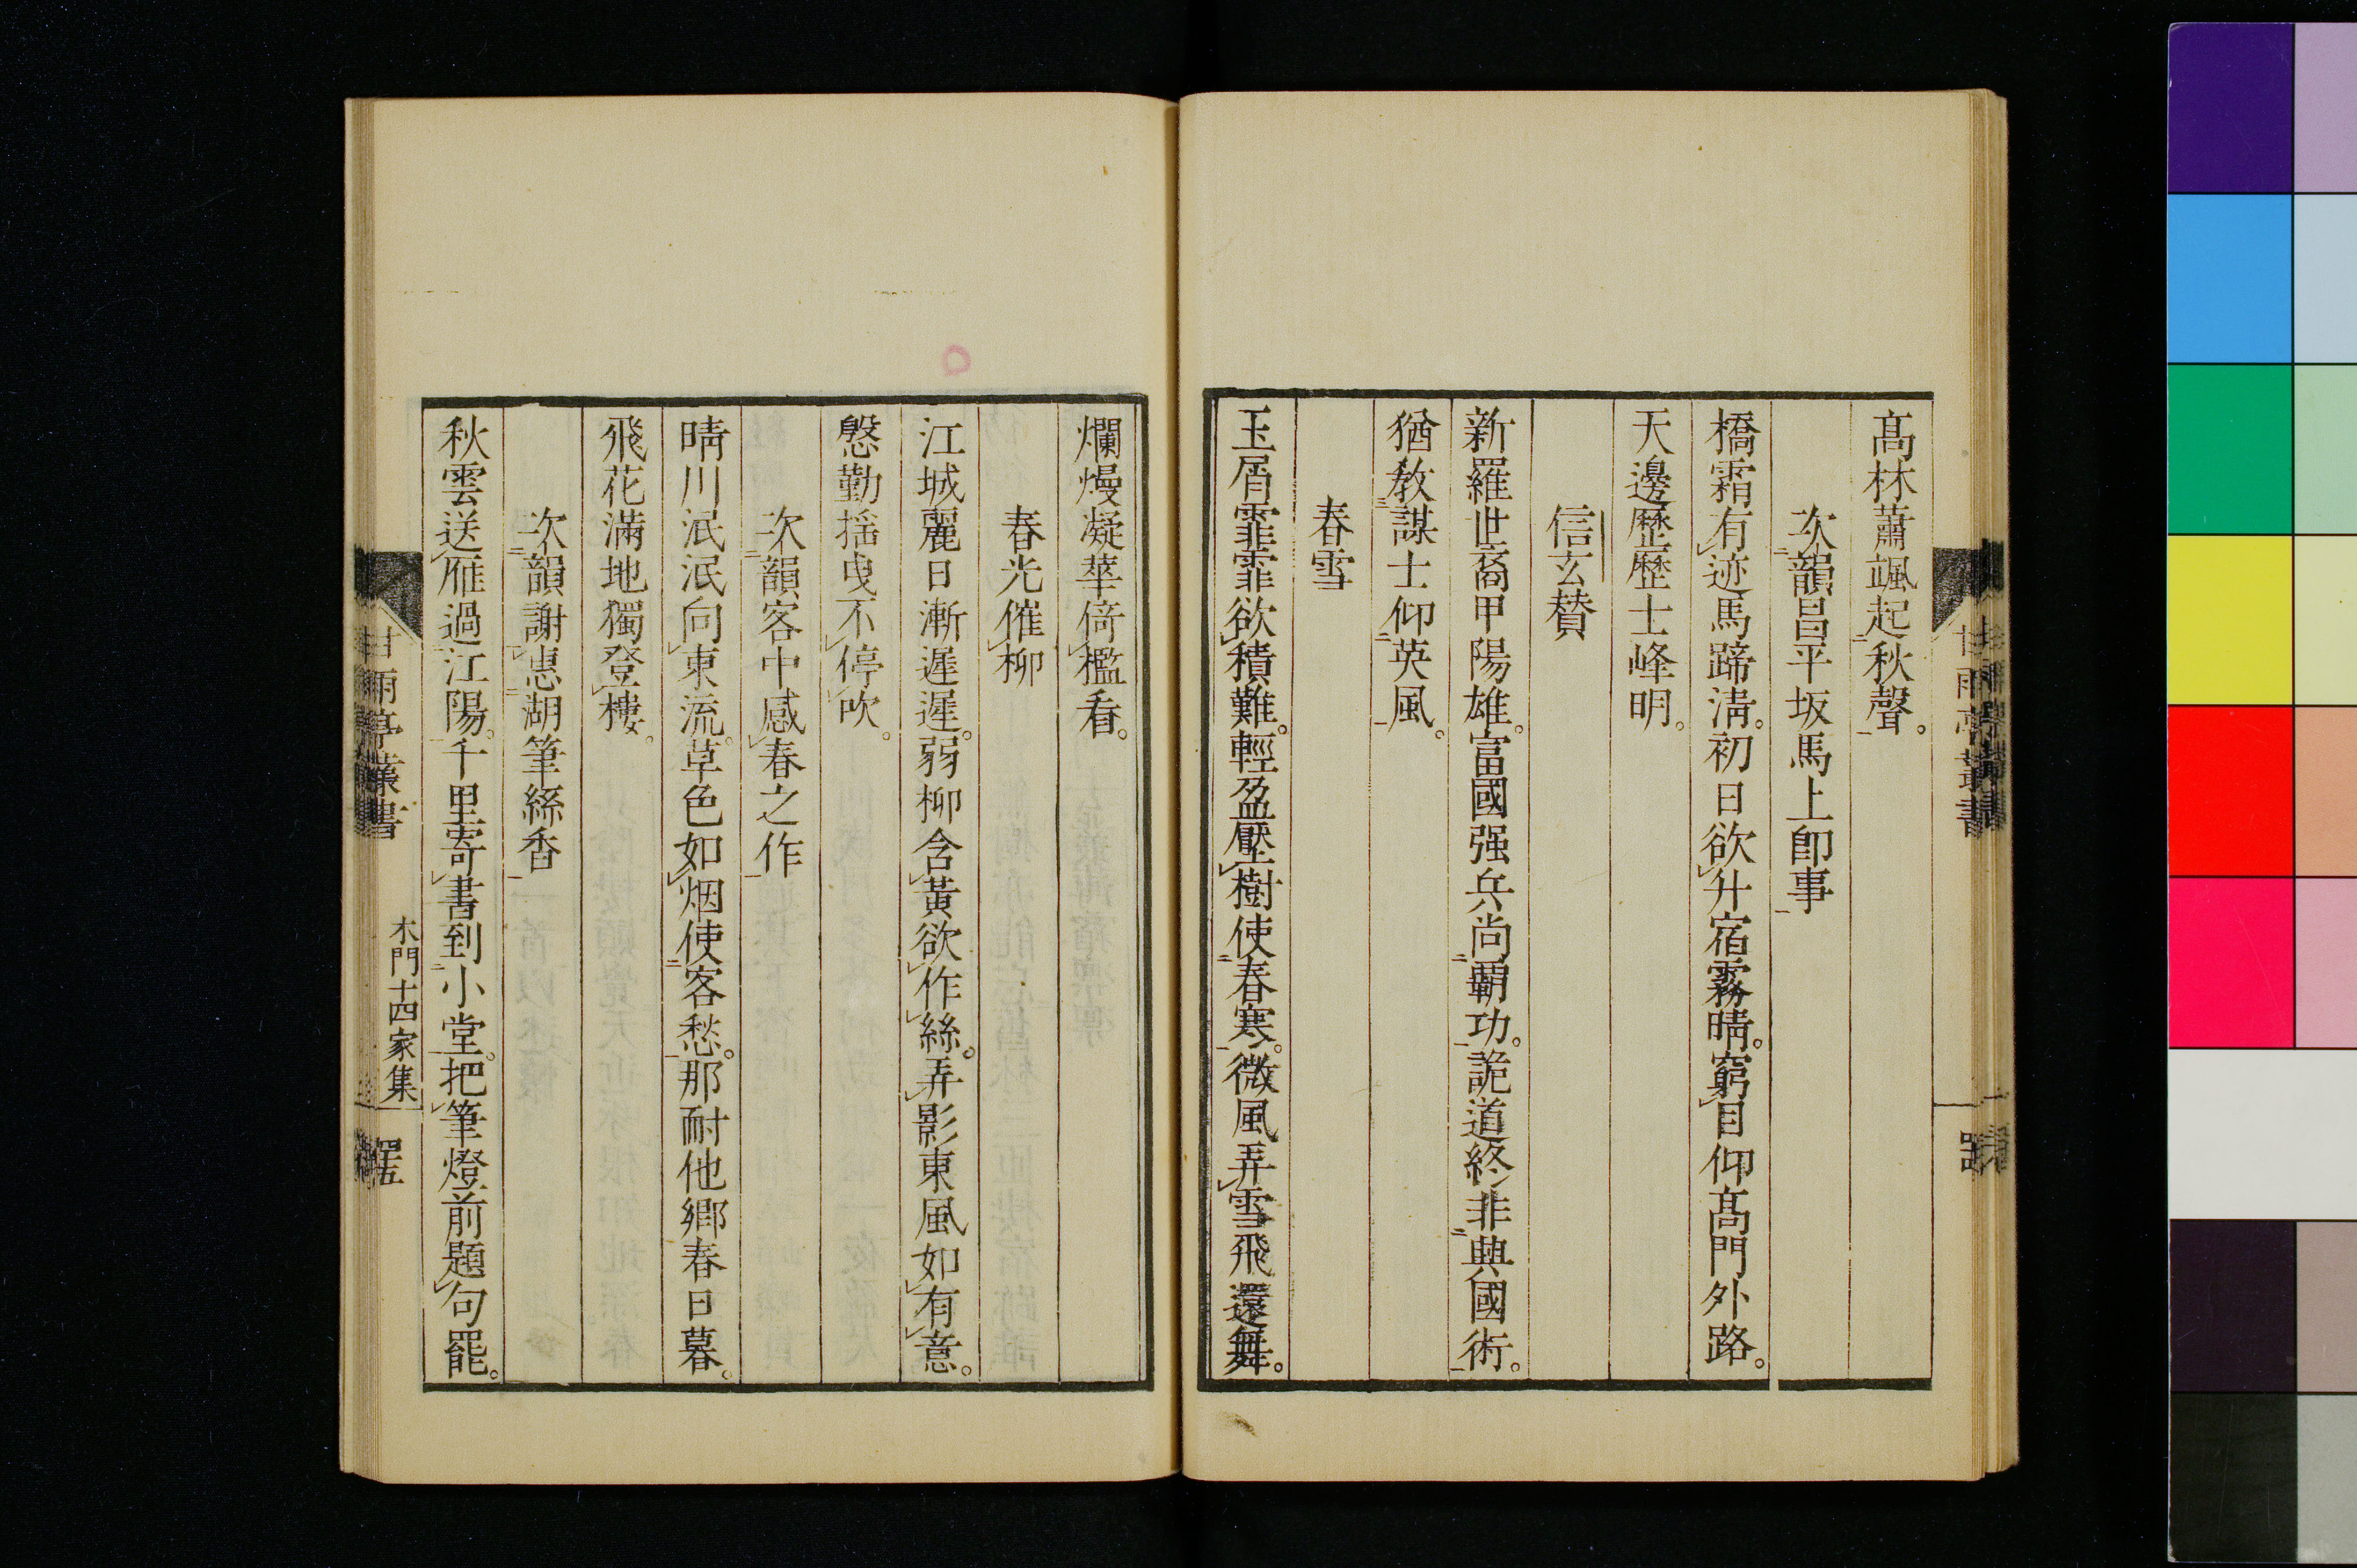 高林蕭颯起秋聲。
次韻昌平坂馬上卽事
橋霜有迹馬蹄淸。初日欲升宿霧晴。窮目仰高門外路。
天邊歷歷士峰明。
信玄賛
新羅世裔甲陽雄。富國强兵尚覇功。詭道終非典國術。
猶教謀士仰英風。
春雪
玉屑霏霏欲積難。輕盈壓樹使春寒。微風弄雪飛還舞。
爛熳凝華倚檻看。
春光催柳
江城麗日漸遲遲。弱柳含黃欲作絲。弄影東風如有意。
慇勤揺曳不停吹。
次韻客中感春之作
晴川泯泯向東流。草色如烟使客愁。那耐他鄉春日暮。
飛花滿地獨登樓。
次韻謝惠湖筆絲香
秋雲送雁過江陽。千里寄書到小堂。把筆燈前題句罷。
甘雨亭叢書
木門十四家集